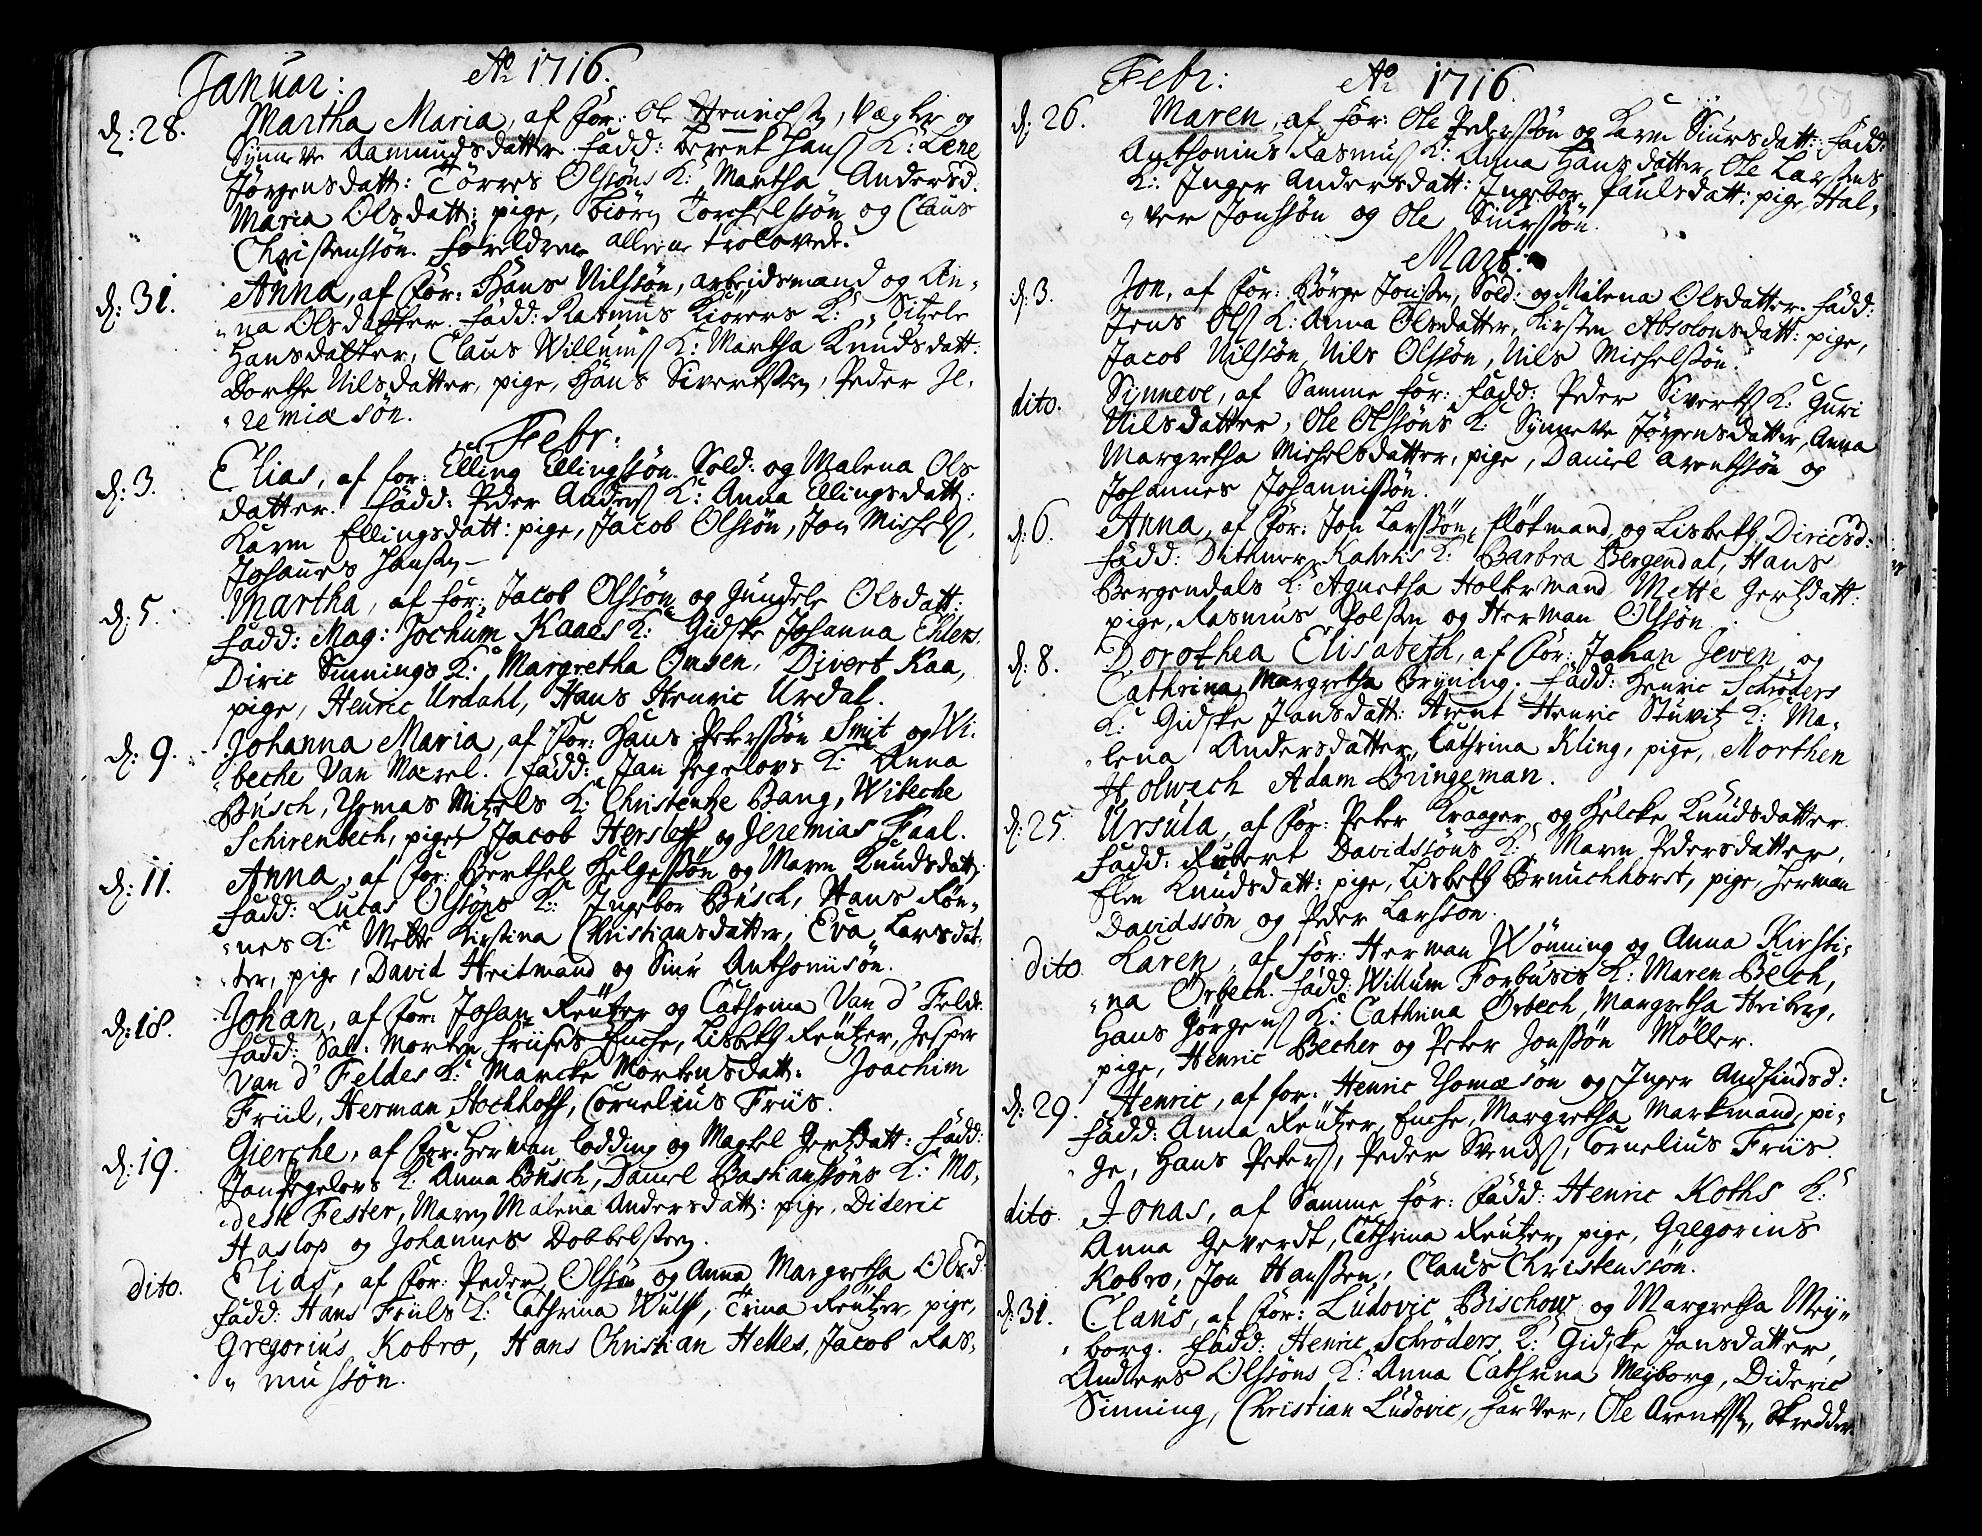 Januar: Aõ 1716.
d: 28. Martha Maria, af For: Ole Henrichsen, Vegter og
Synneve Aamundsdatter Fadd: berent Hanss K: Lene
Jørgensdatt: Torres Olssøns K: Martha Andersd.
Maria Olsdatt: pige, biørn Torchelssøn og Claus
Christenssøn. foreldrene allene trolovede.
d: 31. Anna, af For: Hans Nilssøn, arbeidsmand og An-
"na Olsdatter. Fadd: Rasmus Kiörers K: Sitzele
Hansdatter, Claus Willumss K: Martha Knudsdatt:
Dorthe Nilsdatter, pige, Hans Sivertssen, Peder Je-
"remiæ søn.
Febr:
d: 3. Elias, af for: Elling Ellingssøn Sold: og Malena Ols
datter. Fadd: Peder Anderss K: Anna Ellingsdatt:
Karen Ellingsdatt: pige, Jacob Olssøn, Jon Michelss,
Johanes Hanssen-
d: 5. Martha, af for: Jacob Olssøn og Gundele Olsdatt:
Fadd: Mag: Jochum Kaaes K: Gidske Johanna Ehlers
Diric Sinnings K: Margretha Onsen, Divert Kaa,
pige, Henric Urdahl, Hans Henric Urdal.
d: 9. Johanna Maria, af For: Hans Peterssøn Smit og Wi-
"beche Van Marel. Fadd: Jan Segelovs K: Anna
Busch, Thomas Mitzels K: Christentze Bang, Wibeche
Schirenbech, piger Jacob Hersleff og Jeremias Faal.
d: 11. Anna, af For: Berthel Helgessøn og Maren Knudsdatt:
Fadd: Lucas Olssøns K: Ingebor Busch, Hans Røn-
"nes K: Mette Kirstina Christiansdatter, Eva Larsdat-
"ter, pige, David Heitmand og Siur Anthoniisøn.
d: 18. Johan, af For: Johan Reutzer og Cathrina Van d' Felde.
Fadd: Sal: Morten Friises Enche, Lisbeth Reutzer, Jesper
Van d' Feldes K: Marcke Mortensdatt: Joachim
Friil, Herman Stochhoff, Cornelius Friis.
d: 19. Gierche, af For: Herman Codding og Magtel Gertzdatt: Fadd:
Jan Segelovs K: Anna Busch, Daniel Bastianssøns K: Mo-
"deste Fester, Maren Malena Andersdatt: pige, Dideric
Haslop og Johannes Dobbelsteen.
dito. Elias, af For: Peder Olssøn og Anna Margretha Olsd:
Fadd: Hans Friils K: Cathrina Wulff, Trina Reutzer, pige,
Gregorius Kobro, Hans Christian Helles, Jacob Ras-
"mussøn.
Febr: Aõ 1716. 250
d: 26. Maren, af for: Ole Pederssøn og Karen Siursdatt: Fadd:
Anthonius Rasmuss K: Anna Hansdatter, Ole Larssens
K: Inger Andersdatt: Ingebor Paulsdatt: pige, Hal-
"ver Jonssøn og Ole Siurssøn.
Mart:
d: 3. Jon, af For: Børge Jonssen, Sold: og Malena Olsdatter. Fadd:
Jens Olss K: Anna Olsdatter, Kirsten Absolonsdatt: pige,
Jacob Nilssøn, Nils Olssøn, Nils Michelssøn.
dito. Synneve, af Samme for: Fadd: Peder Sivertss K: Guri
Nilsdatter, Ole Olssøns K: Synneve Jørgensdatter, Anna
Margretha Michelsdatter, pige, Daniel Arentssøn og
Johannes Johannissøn.
d: 6. Anna, af For: Jon Larssøn, fløtmand og Lisbeth Diricsd:
Fadd: Dithmer Kahrhs K: Barbra Bergendal, Hans
Bergendals K: Agnetha Holtermand Mette Gertzdatt:
pige, Rasmus Polssen og Herman Olssøn.
d: 8. Dorothea Elisabeth, af For: Johan Jeven og
Cathrina Margretha Bryning. Fadd: Henric Schrøders
K: Gidske Jansdatt: Arent Henric Stuvitz K: Ma-
"lena Andersdatter, Cathrina Kling, pige, Morthen
Holwech Adam Bringeman.
d: 25. Ursula, af For: Peter Kraager og Helcke Knudsdatter
Fadd: Rubert Davidssøns K: Maren Pedersdatter,
Elen Knudsdatt: pige, Lisbeth Bruuchhorst, pige, Herman
Davidssøn og Peder Larssøn.
dito Karen, af for: Herman Wönning og Anna Kirsti-
"na Ørbech. Fadd: Willum Forbuses K: Maren Bech,
Hans Jörgenss K: Cathrina Ørbech, Margretha Heiberg,
pige, Henric Becher og Peter Jonssøn Møller.
d: 29. Henric, af for: Henric Thomæsøn og Inger Andfindsd:
Fadd: Anna Reutzer, Enche, Margretha Markmand, pi-
ge, Hans Peterss, Peder Svendss, Cornelius Friis.
dito. Jonas, af Samme for: Fadd: Henric Koths K:
Anna Geverdt, Cathrina Reutzer, pige, Gregorius
Kobro, Jon Hanssen, Claus Christenssøn.
d: 31. Claus, af For: Ludovic Bischow og Margretha Mey-
"borg. Fadd: Henric Schrøders K: Gidske Jansdatter,
Anders Olssøns K: Anna Cathrina Meyborg, Dideric
Sinning, Christian Ludovic, Farver, Ole Arentss, Skredder.